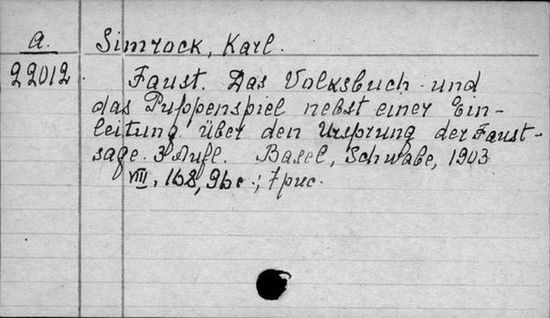 a. Simrock, Karl.
22012. Faust. Das Volksbuch und
das Puppenspiel nebst einer Ein-
leitung über den Ursprung der Faust-
sage. 3 Aufl. Basel, Schwabe, 1903
VIII, 168, 96 c.; 7 рис.